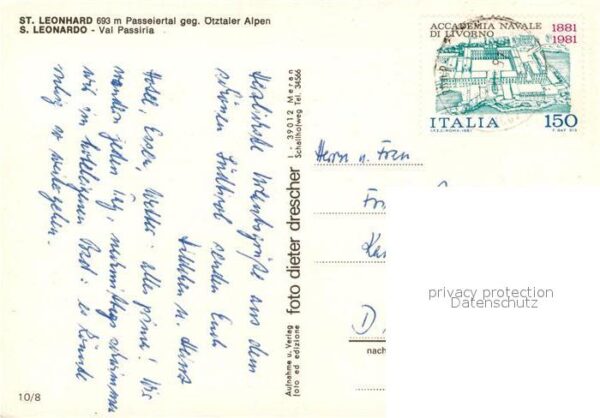 ST. LEONHARD 693 m Passeiertal geg. Ötztaler Alpen
S. LEONARDO - Val Passiria
ACCADEMIA NAVALE
DI LIVORNO
1881
1981
ITALIA 150
I.P.Z.S.-ROMA-1981
Herzlichste Urlaubsgrüße aus dem
schönen Südtirol senden Euch
u. Horst
Hotel, Essen, Wetter: alles prima! Wir
wandern jeden Tag, nachmittags schwimmen
wir im hoteleigenen Bad: es könnte
ruhig so weitergehen.
Aufnahme u. Verlag
foto ed edizione
foto dieter drescher
I - 39012 Meran
Schallhofweg Tel. 34566
Herrn u. Frau
D
nach
privacy protection
Datenschutz
10/8